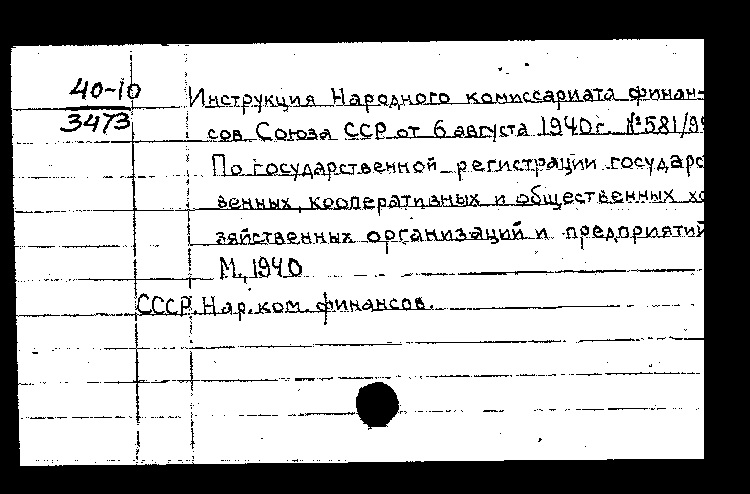 40-10
3473
Инструкция Народного комиссариата финан-
сов Союза ССР от 6 августа 1940 г. №581/99
По государственной регистрации государс
венных, кооперативных и общественных хо
зяйственных организаций и предприятий
М., 1940
СССР. Нар. ком. финансов.